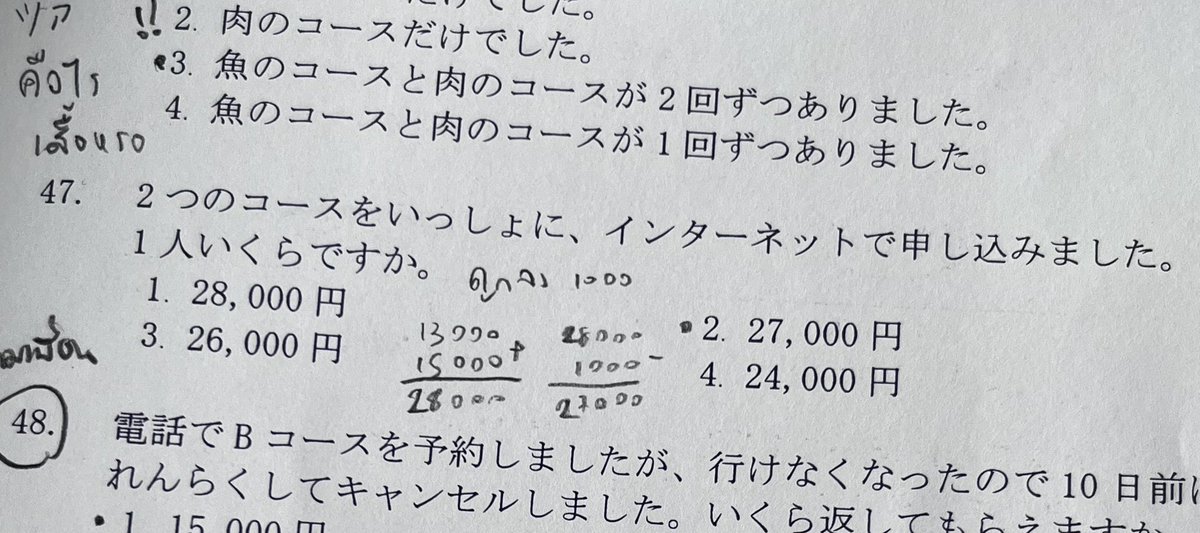 ツア !! 2. 肉のコースだけでした。
คือไร •3. 魚のコースと肉のコースが2回ずつありました。
4. 魚のコースと肉のコースが1回ずつありました。
47. 2つのコースをいっしょに、インターネットで申し込みました。
1人いくらですか。
1000
1. 28,000円
•2. 27,000円
3. 26,000円
4. 24,000円
13000
15000 +
28000
28000
1000 -
27000
48. 電話でBコースを予約しましたが、行けなくなったので10日前
れんらくしてキャンセルしました。いくら返してもらえますか
•1. 15,000円